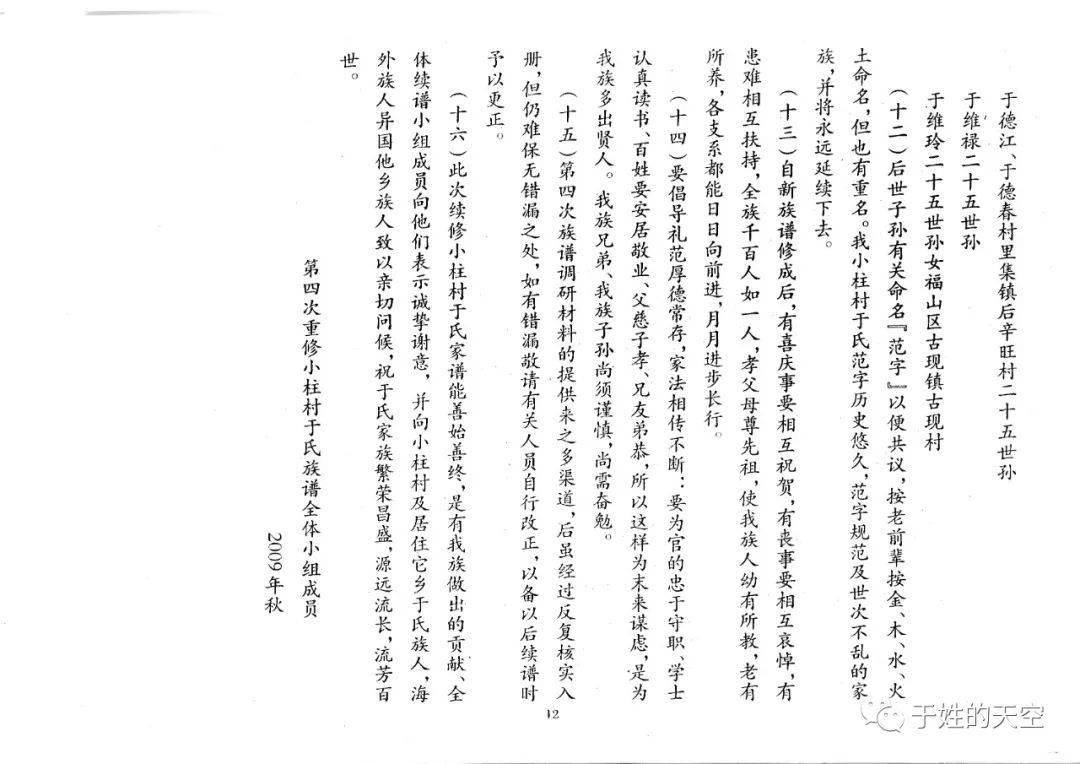 于德江、于德春村里集镇后辛旺村二十五世孙
于维禄二十五世孙
于维玲二十五世孙女福山区古现镇古现村
(十二)后世子孙有关命名『范字』以便共议，按老前辈按金、木、水、火
土命名，但也有重名。我小柱村于氏范字历史悠久，范字规范及世次不乱的家
族，并将永远延续下去。
(十三)自新族谱修成后，有喜庆事要相互祝贺，有丧事要相互哀悼，有
患难相互扶持，全族千百人如一人，孝父母尊先祖，使我族人幼有所教，老有
所养，各支系都能日日向前进，月月进步长行。
(十四)要倡导礼范厚德常存，家法相传不断：要为官的忠于守职、学士
认真读书、百姓要安居敬业、父慈子孝、兄友弟恭，所以这样为末来谋虑，是为
我族多出贤人。我族兄弟、我族子孙尚须谨慎，尚需奋勉。
(十五)第四次族谱调研材料的提供来之多渠道，后虽经过反复核实入
册，但仍难保无错漏之处，如有错漏敬请有关人员自行改正，以备以后续谱时
予以更正。
(十六)此次续修小柱村于氏家谱能善始善终，是有我族做出的贡献、全
体续谱小组成员向他们表示诚挚谢意，并向小柱村及居住它乡于氏族人，海
外族人异国他乡族人致以亲切问候，祝于氏家族繁荣昌盛，源远流长，流芳百
世。
第四次重修小柱村于氏族谱全体小组成员
2009年秋
12
于姓的天空